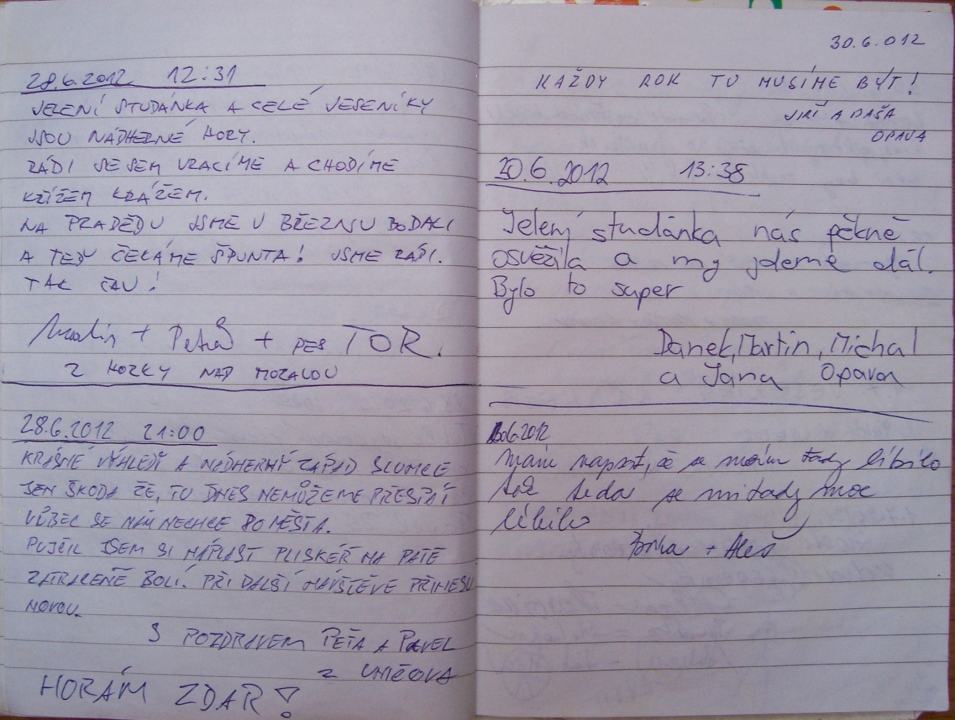 28.6.2012 12:31
JELENÍ STUDÁNKA A CELÉ JESENÍKY
JSOU NÁDHERNÉ HORY.
RÁDI SE SEM VRACÍME A CHODÍME
KŘÍŽEM KRÁŽEM.
NA PRADĚDU JSME V BŘEZNU BODALI
A TEĎ ČEKÁME ŠPUNTA! JSME RÁDI.
TAK ČAU!
+ + PES TOR.
Z HORKY NAD MORAVOU
28.6.2012 21:00
KRÁSNÉ VÝHLEDY A NÁDHERNÝ ZÁPAD SLUNCE
JEN ŠKODA ŽE, TU DNES NEMŮŽEME PŘESPAT
VŮBEC SE NÁM NECHCE DO MĚSTA.
PUJČIL JSEM SI NÁPLAST PLISKÉŘ NA PATĚ
ZATRACENĚ BOLÍ. PŘI DALŠÍ NÁVŠTĚVE PŘINESU
NOVOU.
S POZDRAVEM PEŤA A PAVEL
Z UNIČOVA
HORÁM ZDAR!
30.6.012
KAŽDY ROK TU MUSÍME BÝT!
JIŘÍ A DAŠA
OPAVA
30.6.2012 13:38
Jelení studánka nás pěkně
osvěžila a my jdeme dál.
Bylo to super
Danek, Martin, Michal
a Jana Opava
30.6.2012
Mám napsat, že se mi tady líbilo
tak teda se mi tady moc
líbilo
+ Aleš